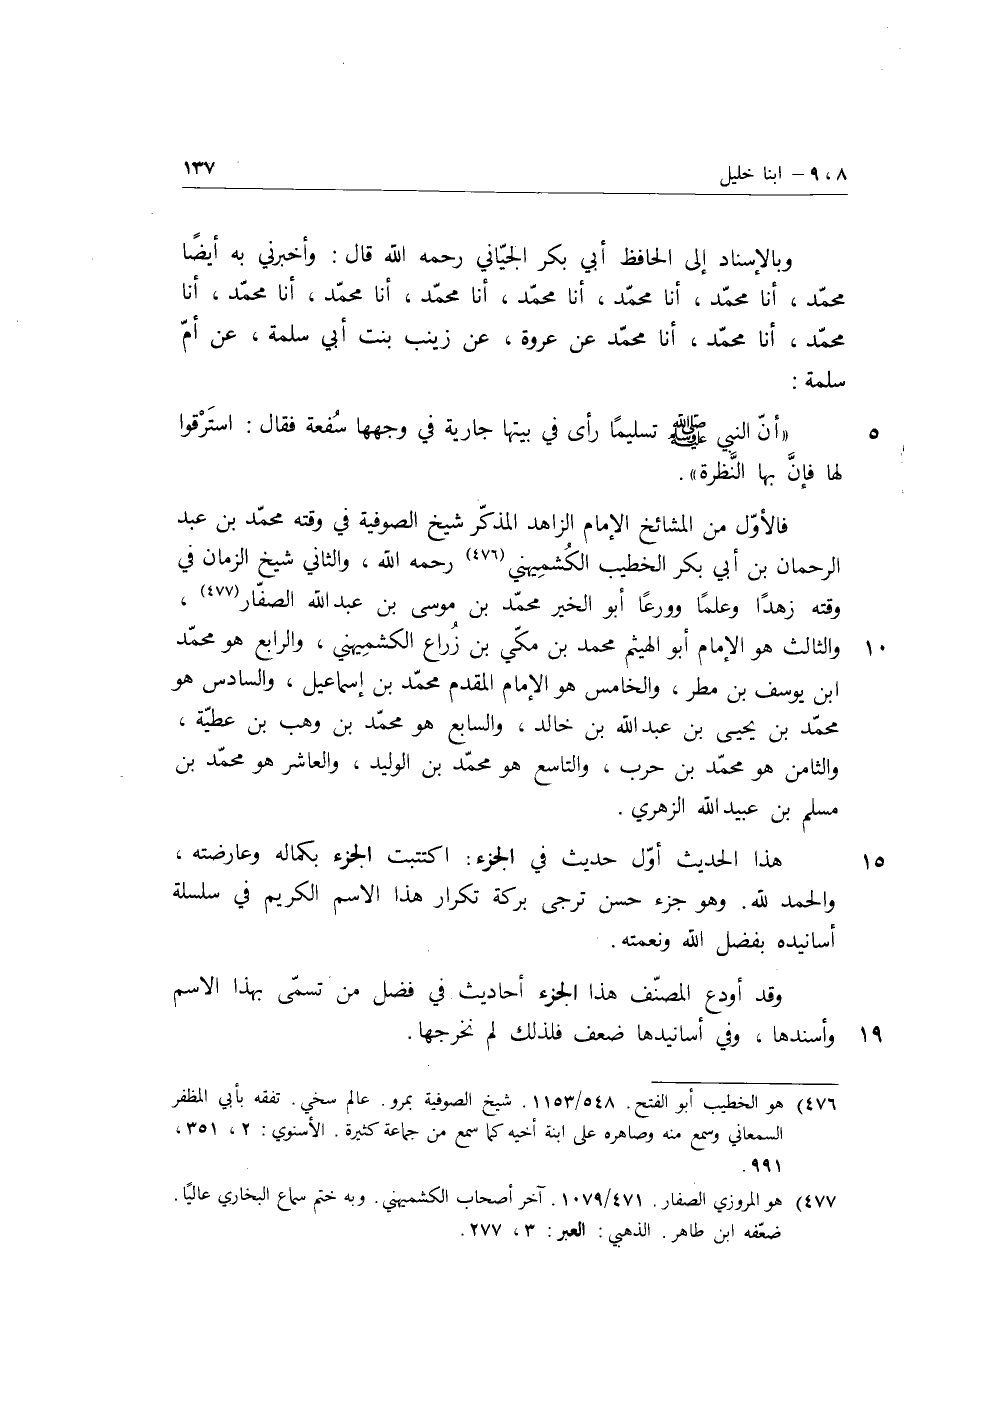 ٨ ، ٩ – ابنا خليل ١٣٧
وبالإسناد إلى الحافظ أبي بكر الجيّاني رحمه الله قال : وأخبرني به أيضًا
محمّد ، أنا محمّد ، أنا محمّد ، أنا محمّد ، أنا محمّد ، أنا محمّد ، أنا محمّد ، أنا
محمّد ، أنا محمّد ، أنا محمّد عن عروة ، عن زينب بنت أبي سلمة ، عن أمّ
سلمة :
٥ «أنّ النبي ﷺ تسليمًا رأى في بيتها جارية في وجهها سُفعة فقال : استَرْقوا
لها فإنَّ بها النَّظرة» .
فالأوّل من المشائخ الإمام الزاهد المذكّر شيخ الصوفية في وقته محمّد بن عبد
الرحمان بن أبي بكر الخطيب الكُشمِيهني(٤٧٦) رحمه الله ، والثاني شيخ الزمان في
وقته زهدًا وعلمًا وورعًا أبو الخير محمّد بن موسى بن عبدالله الصفّار(٤٧٧) ،
١٠ والثالث هو الإمام أبو الهيثم محمد بن مكّي بن زُراع الكشمِيهني ، والرابع هو محمّد
ابن يوسف بن مطر ، والخامس هو الإمام المقدم محمّد بن إسماعيل ، والسادس هو
محمّد بن يحيى بن عبدالله بن خالد ، والسابع هو محمّد بن وهب بن عطيّة ،
والثامن هو محمّد بن حرب ، والتاسع هو محمّد بن الوليد ، والعاشر هو محمّد بن
مسلم بن عبيدالله الزهري .
١٥ هذا الحديث أوّل حديث في الجزء : اكتتبت الجزء بكماله وعارضته ،
والحمد لله . وهو جزء حسن ترجى بركة تكرار هذا الاسم الكريم في سلسلة
أسانيده بفضل الله ونعمته .
وقد أودع المصنّف هذا الجزء أحاديث في فضل من تسمّى بهذا الاسم
١٩ وأسندها ، وفي أسانيدها ضعف فلذلك لم نخرجها .
٤٧٦) هو الخطيب أبو الفتح . ١١٥٣/٥٤٨ . شيخ الصوفية بمرو . عالم سخي . تفقه بأبي المظفر
السمعاني وسمع منه وصاهره على ابنة أخيه كما سمع من جماعة كثيرة . الأسنوي : ٢ ، ٣٥١ ،
٩٩١ .
٤٧٧) هو المروزي الصفار . ١٠٧٩/٤٧١ . آخر أصحاب الكشميهني . وبه ختم سماع البخاري عاليًا .
ضعّفه ابن طاهر . الذهبي : العبر : ٣ ، ٢٧٧ .